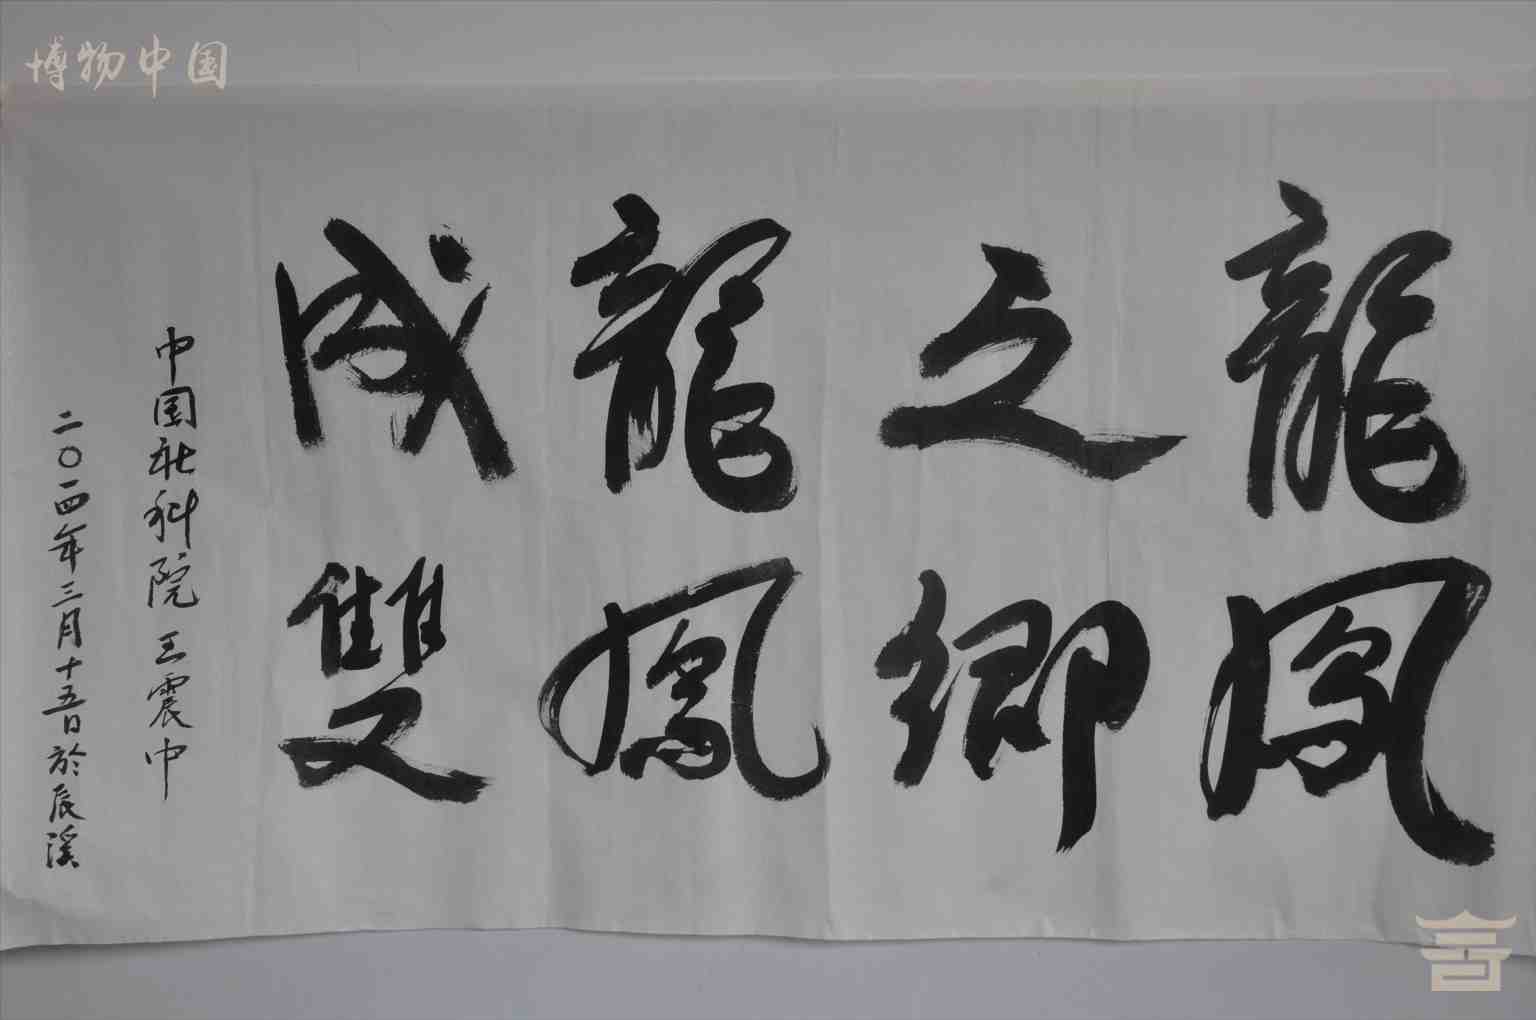 博物中国
龍鳳
之鄉
龍鳳
成雙
中国社科院 王震中
二〇一四年三月十五日於辰溪